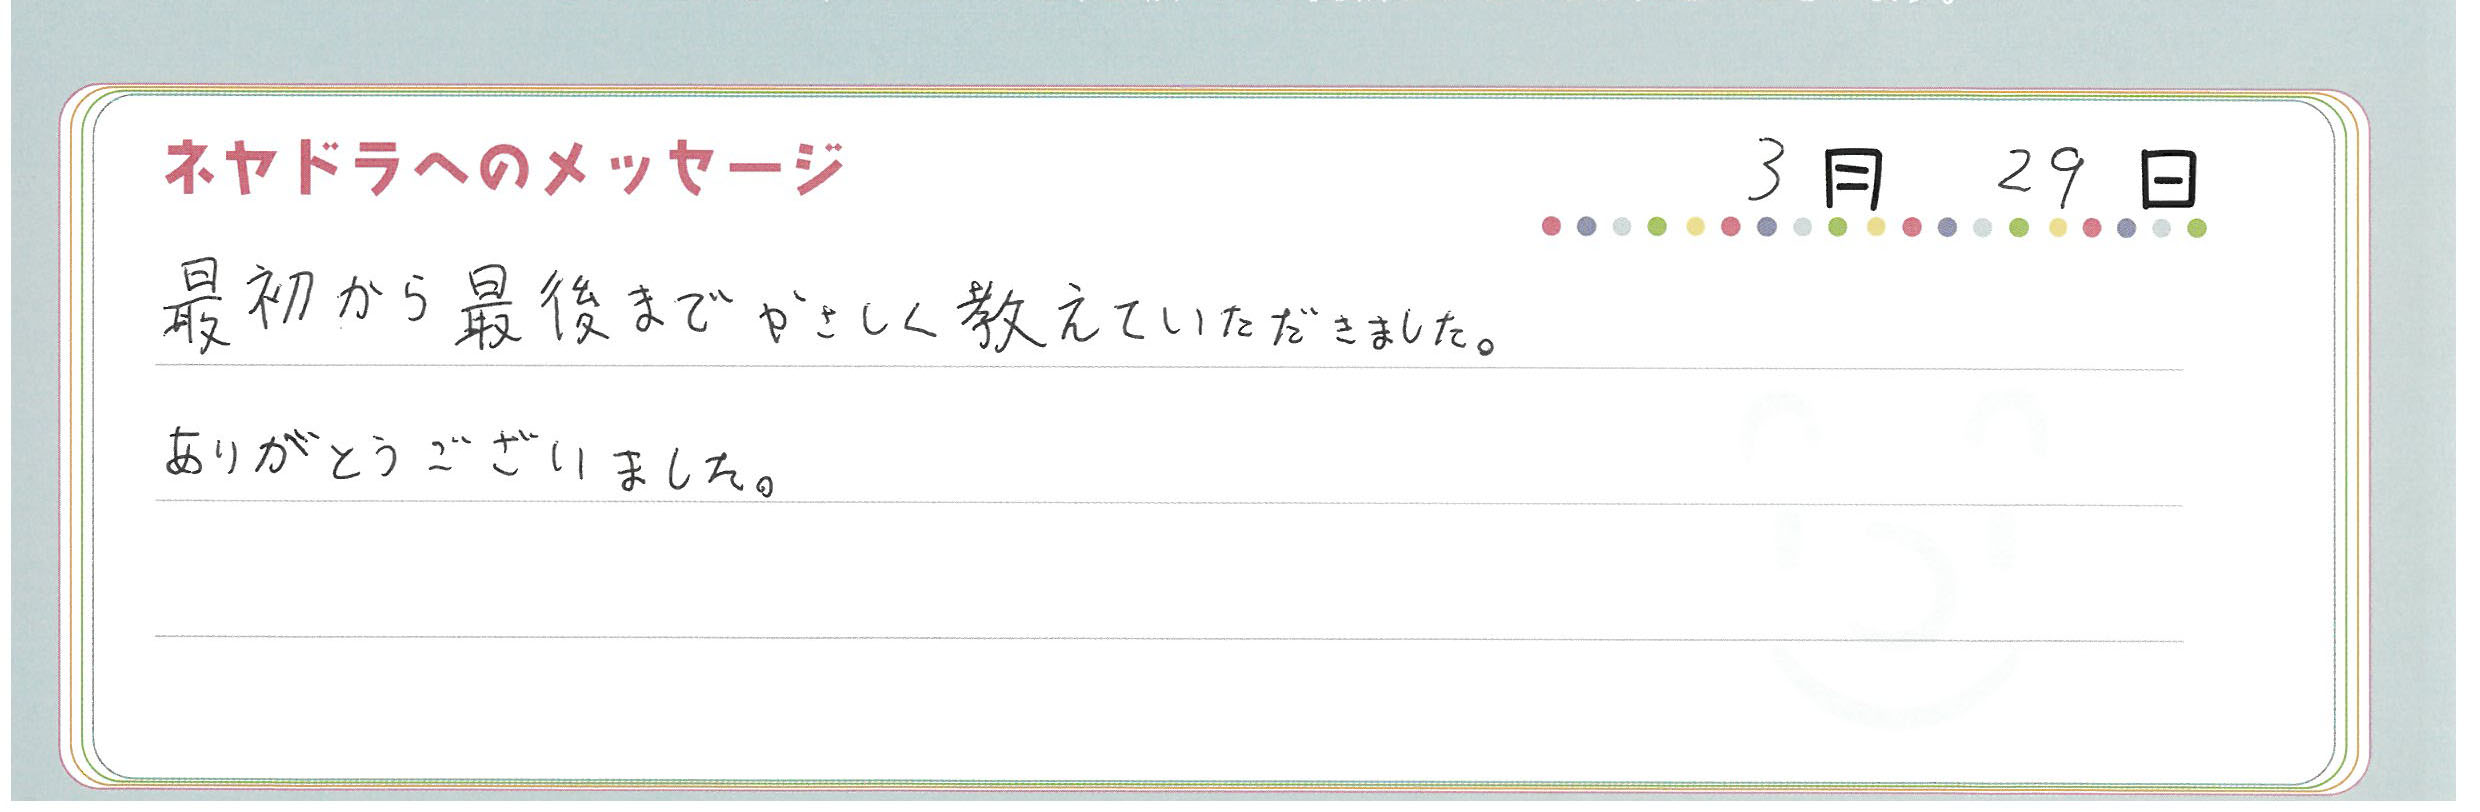 ネヤドラへのメッセージ
3月 29日
最初から最後までやさしく教えていただきました。
ありがとうございました。